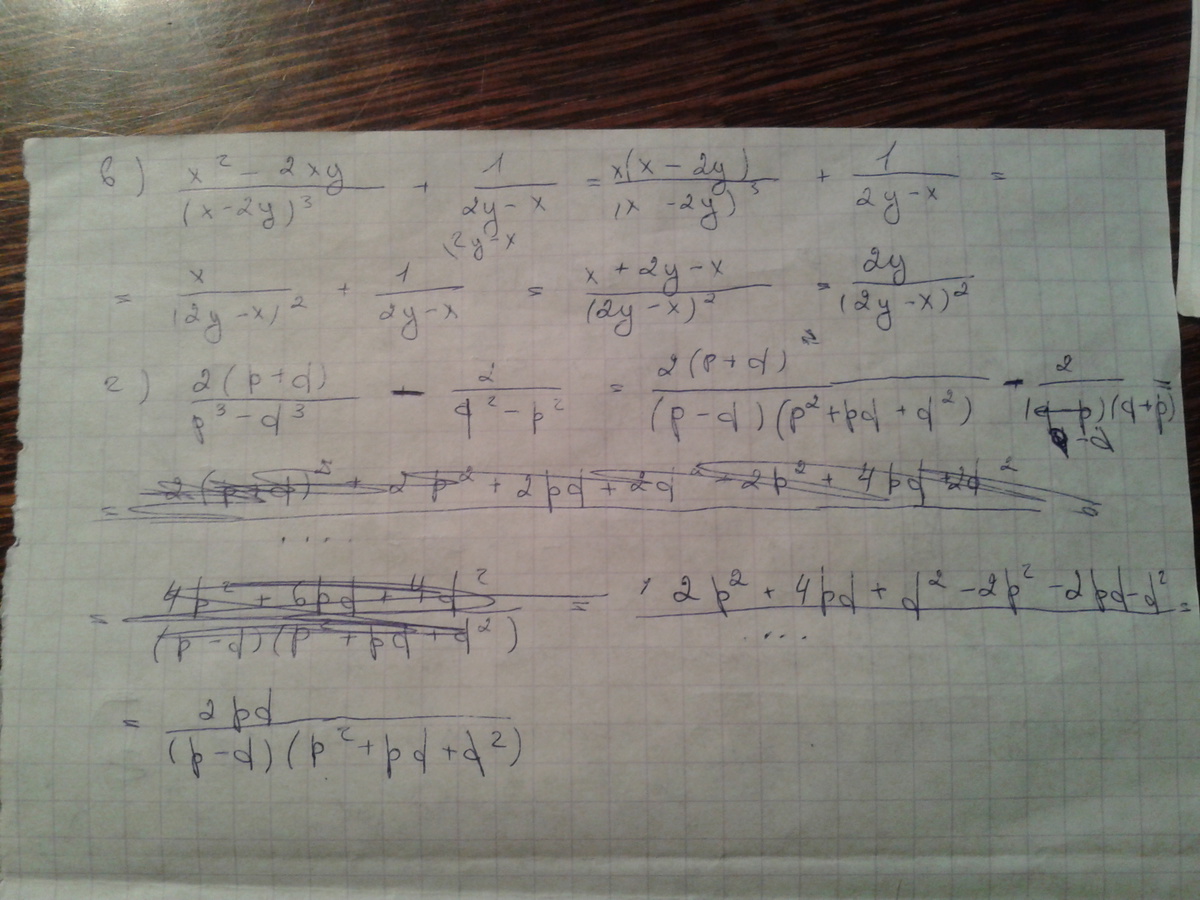 в) (x² - 2xy)/(x-2y)³ + 1/(2y-x) = x(x-2y)/(x -2y)³ + 1/(2y-x) =
(2y-x
= x/(2y-x)² + 1/(2y-x) = (x+2y-x)/(2y-x)² = 2y/(2y-x)²
г) 2(p+d)/(p³-d³) - 2/(d²-p²) = 2(p+d)²/((p-d)(p²+pd+d²)) - 2/((d-p)(d+p)) =
-d
= 2(p+d)² + 2p² + 2pd + 2d² 2p² + 4pd +2d²
....
= (4p² + 6pd + 4d²)/((p-d)(p²+pd+d²)) = 2p² + 4pd + d² - 2p² - 2pd - d² =
....
= 2pd/((p-d)(p²+pd+d²))